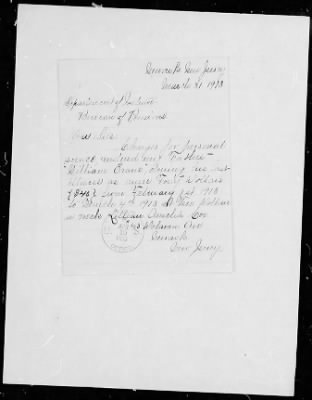 Newark New Jersey
March 21 1913
Department of Interior
Bureau of Pensions
Dear Sir
Charges for personal
service rendered my Father
William Crane during his last
illness as nurse Forty Dollars
$40 from February 1st 1913
to March 4th 1913 at
a week Lillian Amelia Coe
Ave
Newark
New Jersey